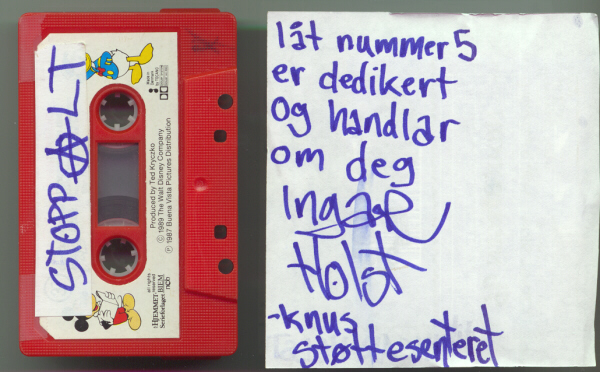 STOPP ALT
Produced by Ted Kryczko
© 1989 The Walt Disney Company
℗ 1987 Buena Vista Pictures Distribution
all rights
reserved
HJEMMET
Serieforlaget
BIEM
n©b
låt nummer 5
er dedikert
og handlar
om deg
Ingar
Holst
-knus
støttesenteret